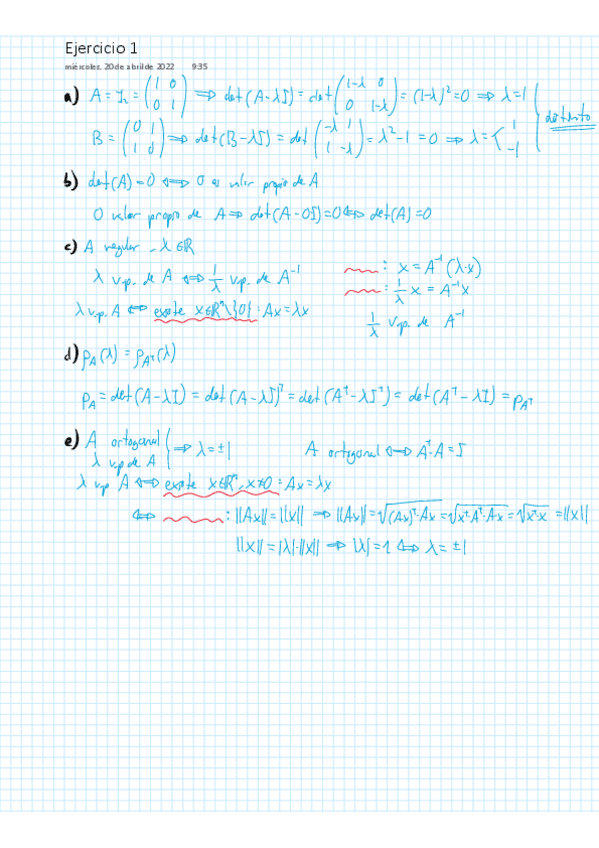 Ejercicio 1
miércoles, 20 de abril de 2022 9:35
a) A = I₂ = (1 0 / 0 1) ⟹ det(A-λI) = det(1-λ 0 / 0 1-λ) = (1-λ)² = 0 ⟹ λ=1
B = (0 1 / 1 0) ⟹ det(B-λI) = det(-λ 1 / 1 -λ) = λ²-1 = 0 ⟹ λ = < 1 / -1
distinto
b) det(A)=0 ⟺ 0 es valor propio de A
0 valor propio de A ⟹ det(A-0I)=0 ⟺ det(A)=0
c) A regular, λ∈ℝ
λ v.p. de A ⟺ 1/λ v.p. de A⁻¹
λ v.p. A ⟺ existe x∈ℝⁿ\{0}: Ax=λx
: x = A⁻¹(λ·x)
: 1/λ x = A⁻¹x
1/λ v.p. de A⁻¹
d) p_A(λ) = p_Aᵀ(λ)
p_A = det(A-λI) = det(A-λI)ᵀ = det(Aᵀ-λIᵀ) = det(Aᵀ-λI) = p_Aᵀ
e) A ortogonal
λ v.p de A } ⟹ λ=±1 A ortogonal ⟺ Aᵀ·A=I
λ v.p A ⟺ existe x∈ℝⁿ, x≠0: Ax=λx
⟺ : ||Ax||=||λx|| ⟹ ||Ax||=√((Ax)ᵀ·Ax)=√(xᵀ·Aᵀ·A·x)=√(xᵀ·x)=||x||
||x||=|λ|·||x|| ⟹ |λ|=1 ⟺ λ=±1